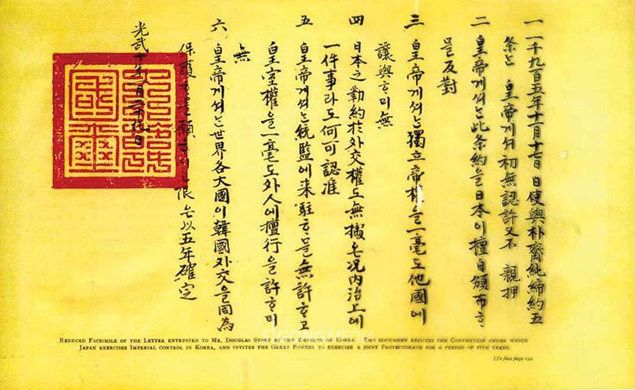 一 一千九百五年十一月十七日日使與朴齊純締約五
條는 皇帝게셔 初無認許又不 親押
二 皇帝게셔는 此条約을 日本이 擅自頒布ᄒᆞᆷ
을 反對
三 皇帝게셔는 獨立帝權을 一毫도 他國에
讓與ᄒᆞ미 無
四 日本之勒約於外交權도 無據온 况内治上에
一件事라도 何可認准
五 皇帝게셔는 統監에 来駐ᄒᆞᆷ을 無許ᄒᆞ고
皇室權을 一毫도 外人에 擅行을 許ᄒᆞ미
無
六 皇帝게셔는 世界各大國이 韓國外交을 同為
保護 願 限은 以五年確定
光武 日
REDUCED FACSIMILE OF THE LETTER ENTRUSTED TO MR. DOUGLAS STORY BY THE EMPEROR OF KOREA. THE DOCUMENT REFUTES THE CONVENTION UNDER WHICH
JAPAN EXERCISES IMPERIAL CONTROL IN KOREA, AND INVITES THE GREAT POWERS TO EXERCISE A JOINT PROTECTORATE FOR A PERIOD OF FIVE YEARS.
[To face page